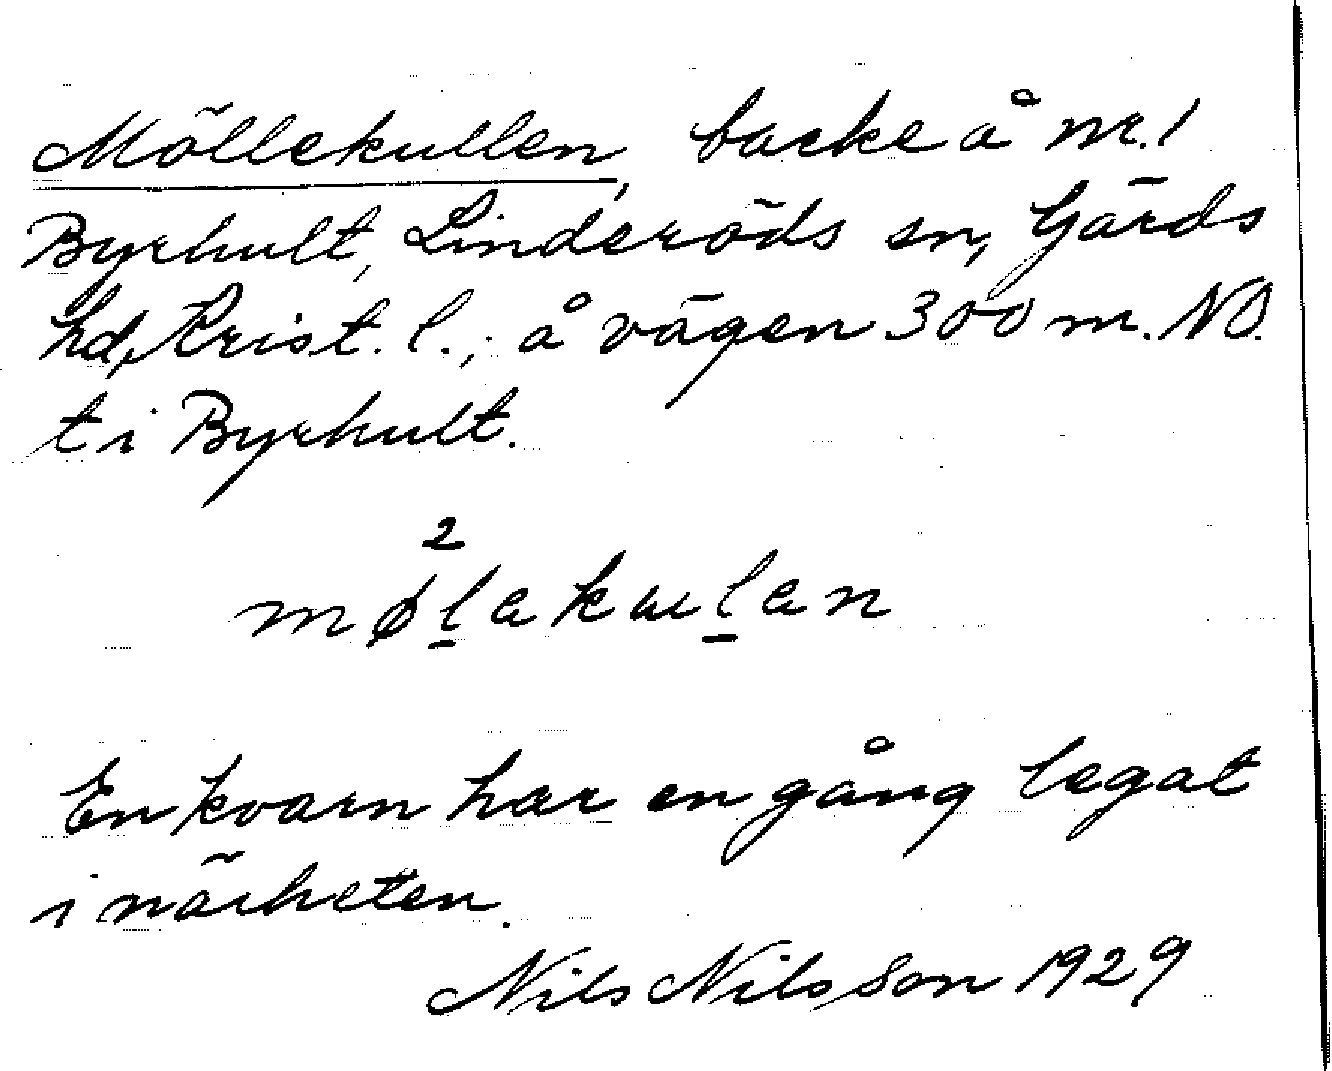 Möllekullen, backe å nr. 1
Byrhult, Linderöds sn, Gärds
hd, Krist. l.; å vägen 300 m. NO.
t i Byrhult.
2
møl̲akuɩl̲an
En kvarn har en gång legat
i närheten.
Nils Nilsson 1929